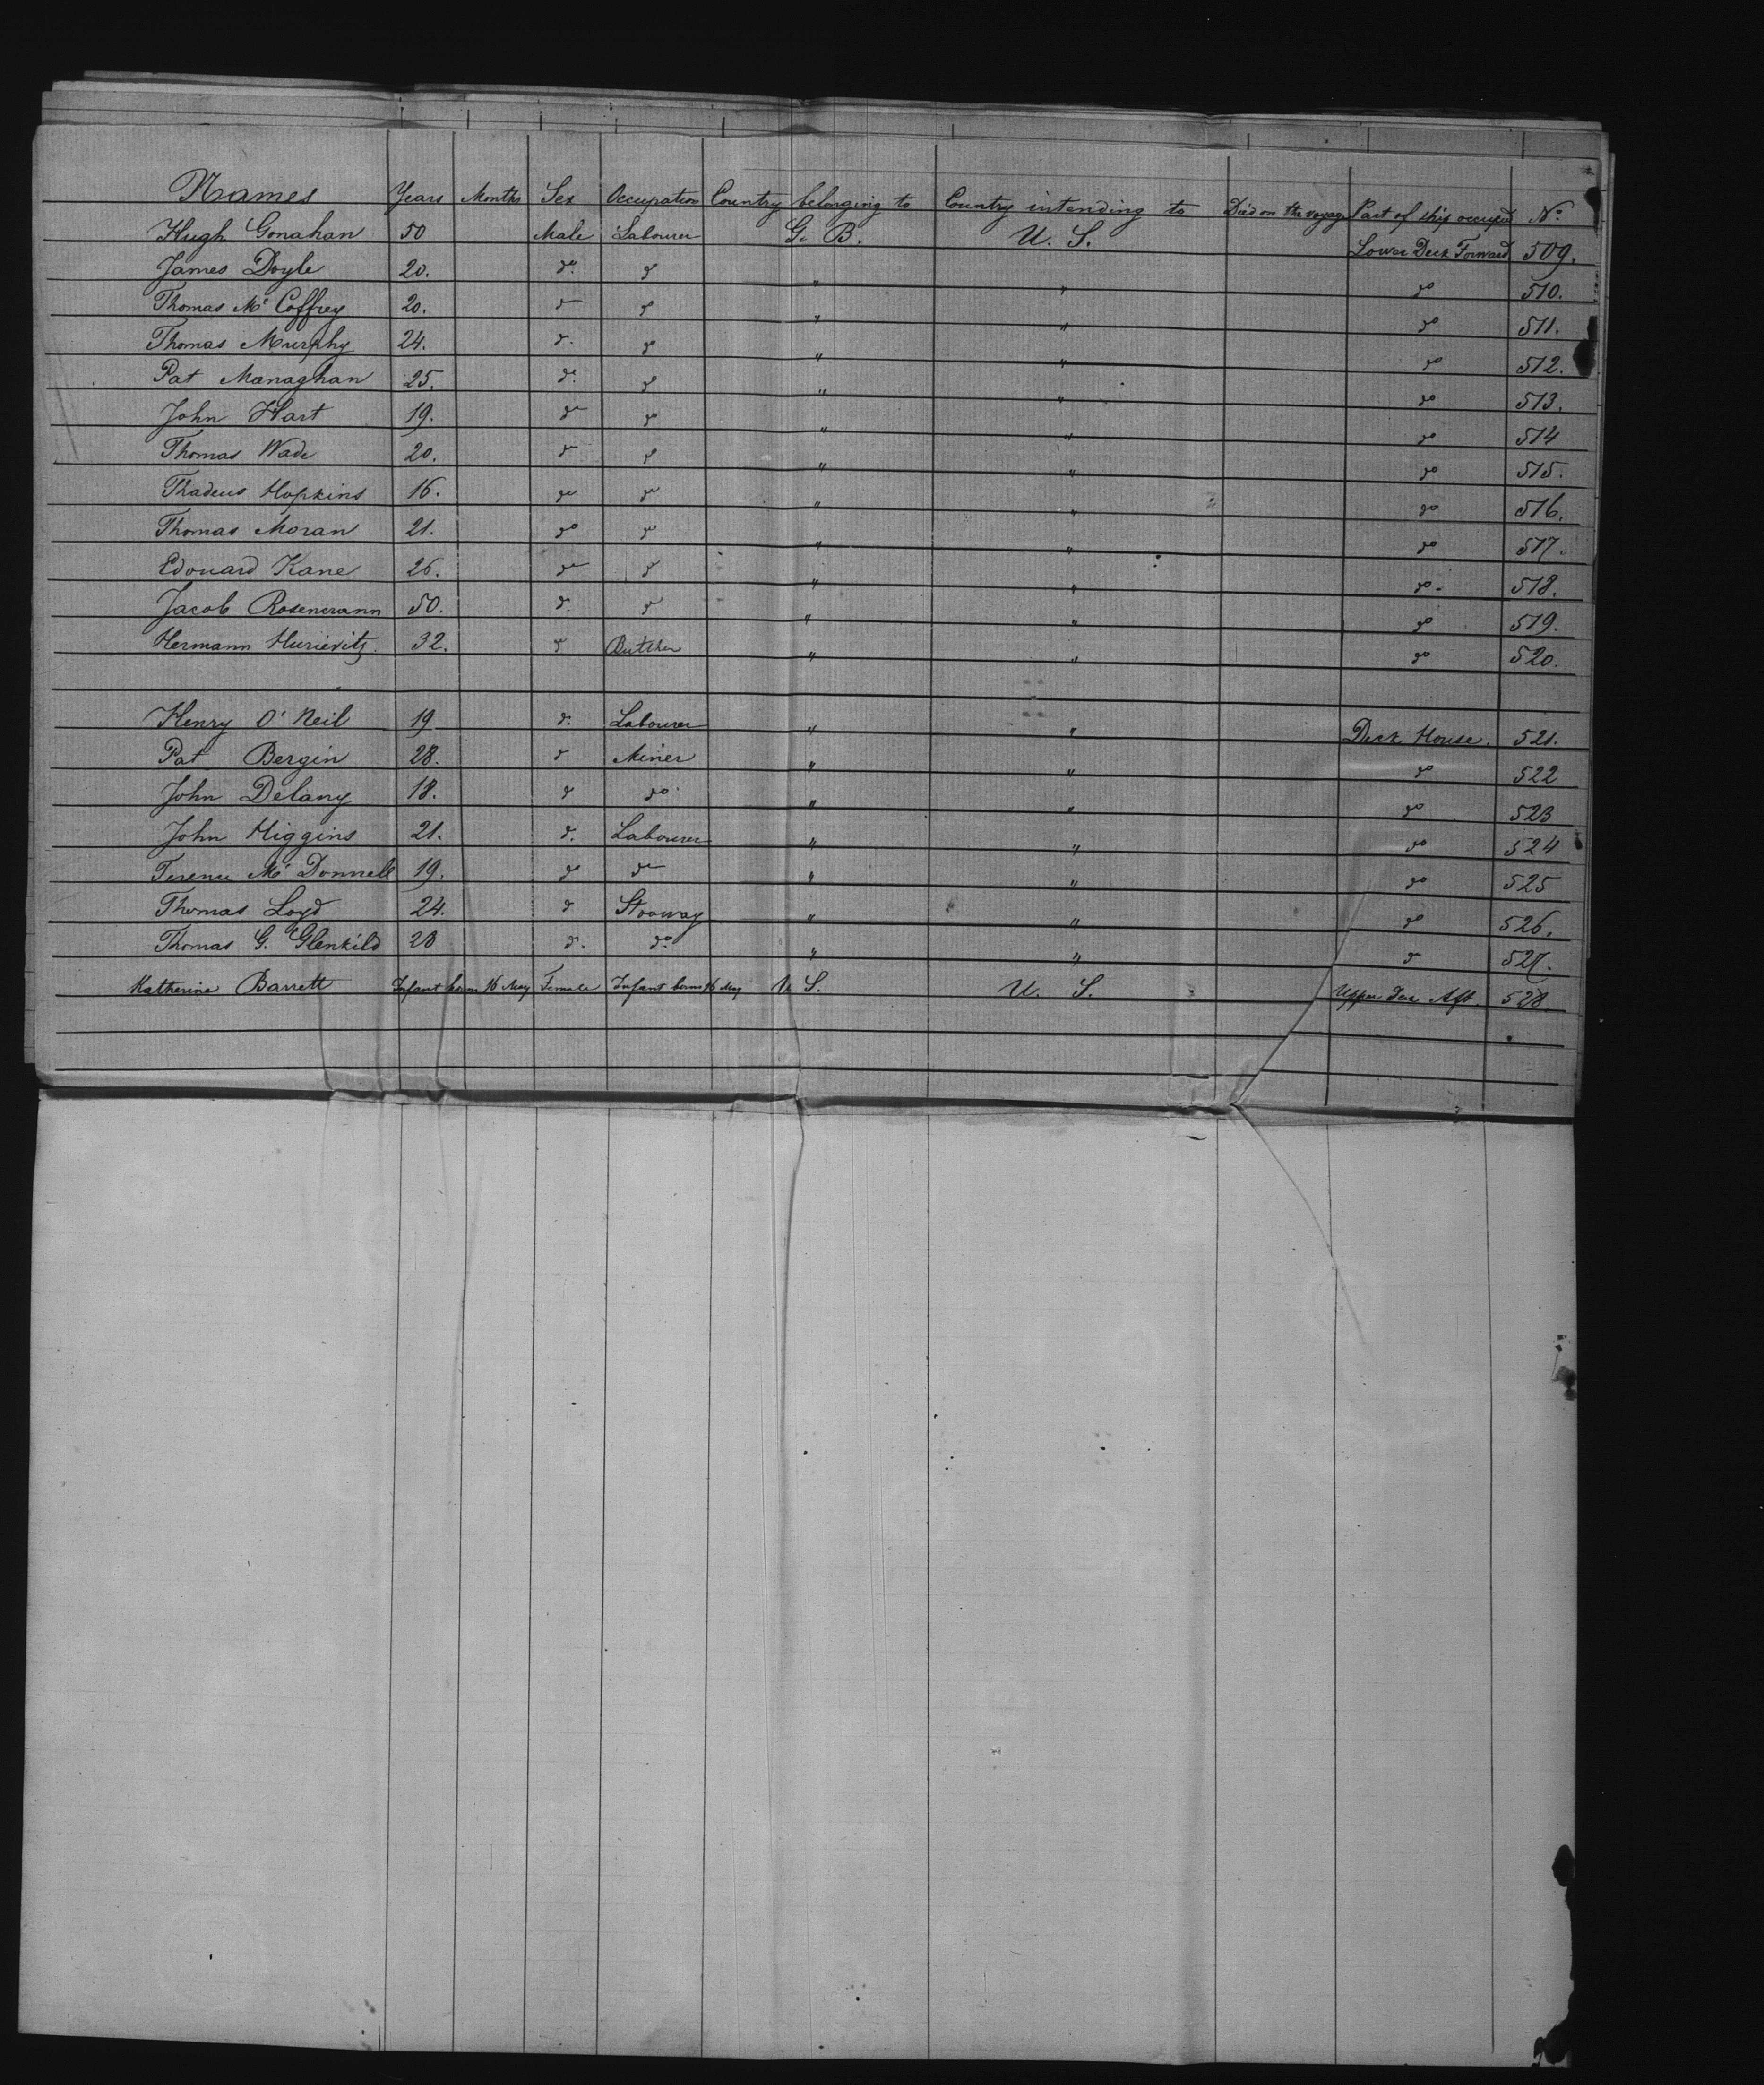 Names Years Months Sex Occupation Country belonging to Country intending to Died on the voyage Part of ship occupied No.
Hugh Gonahan 50 Male Labourer G. B. U. S. Lower Deck Forward 509.
James Doyle 20. do. do " " do 510.
Thomas Mc Coffrey 20. do do " " do 511.
Thomas Murphy 24. do. do " " do 512.
Pat Managhan 25. do. do " " do 513.
John Hart 19. do do " " do 514
Thomas Wade 20. do do " " do 515.
Thadeus Hopkins 16. do do " " do 516.
Thomas Moran 21. do do " " do 517.
Edouard Kane 26. do do " " do. 518.
Jacob Rosencrann 50. do. do " " do 519.
Hermann Hurievitz. 32. do Butcher " " do 520.
Henry O'Neil 19 do. Labourer " " Deck House. 521.
Pat Bergin 28. do Miner " " do 522
John Delany 18. do do. " " do 523
John Higgins 21. do. Labourer " " do 524
Terence Mc Donnell 19. do do " " do 525
Thomas Loyd 24. do Stoway " " do 526.
Thomas G. Glenkild 28 do. do. " " do 527.
Katherine Barrett Infant born 16 May Female Infant born 16 May U. S. U. S. Upper Aft. 528.